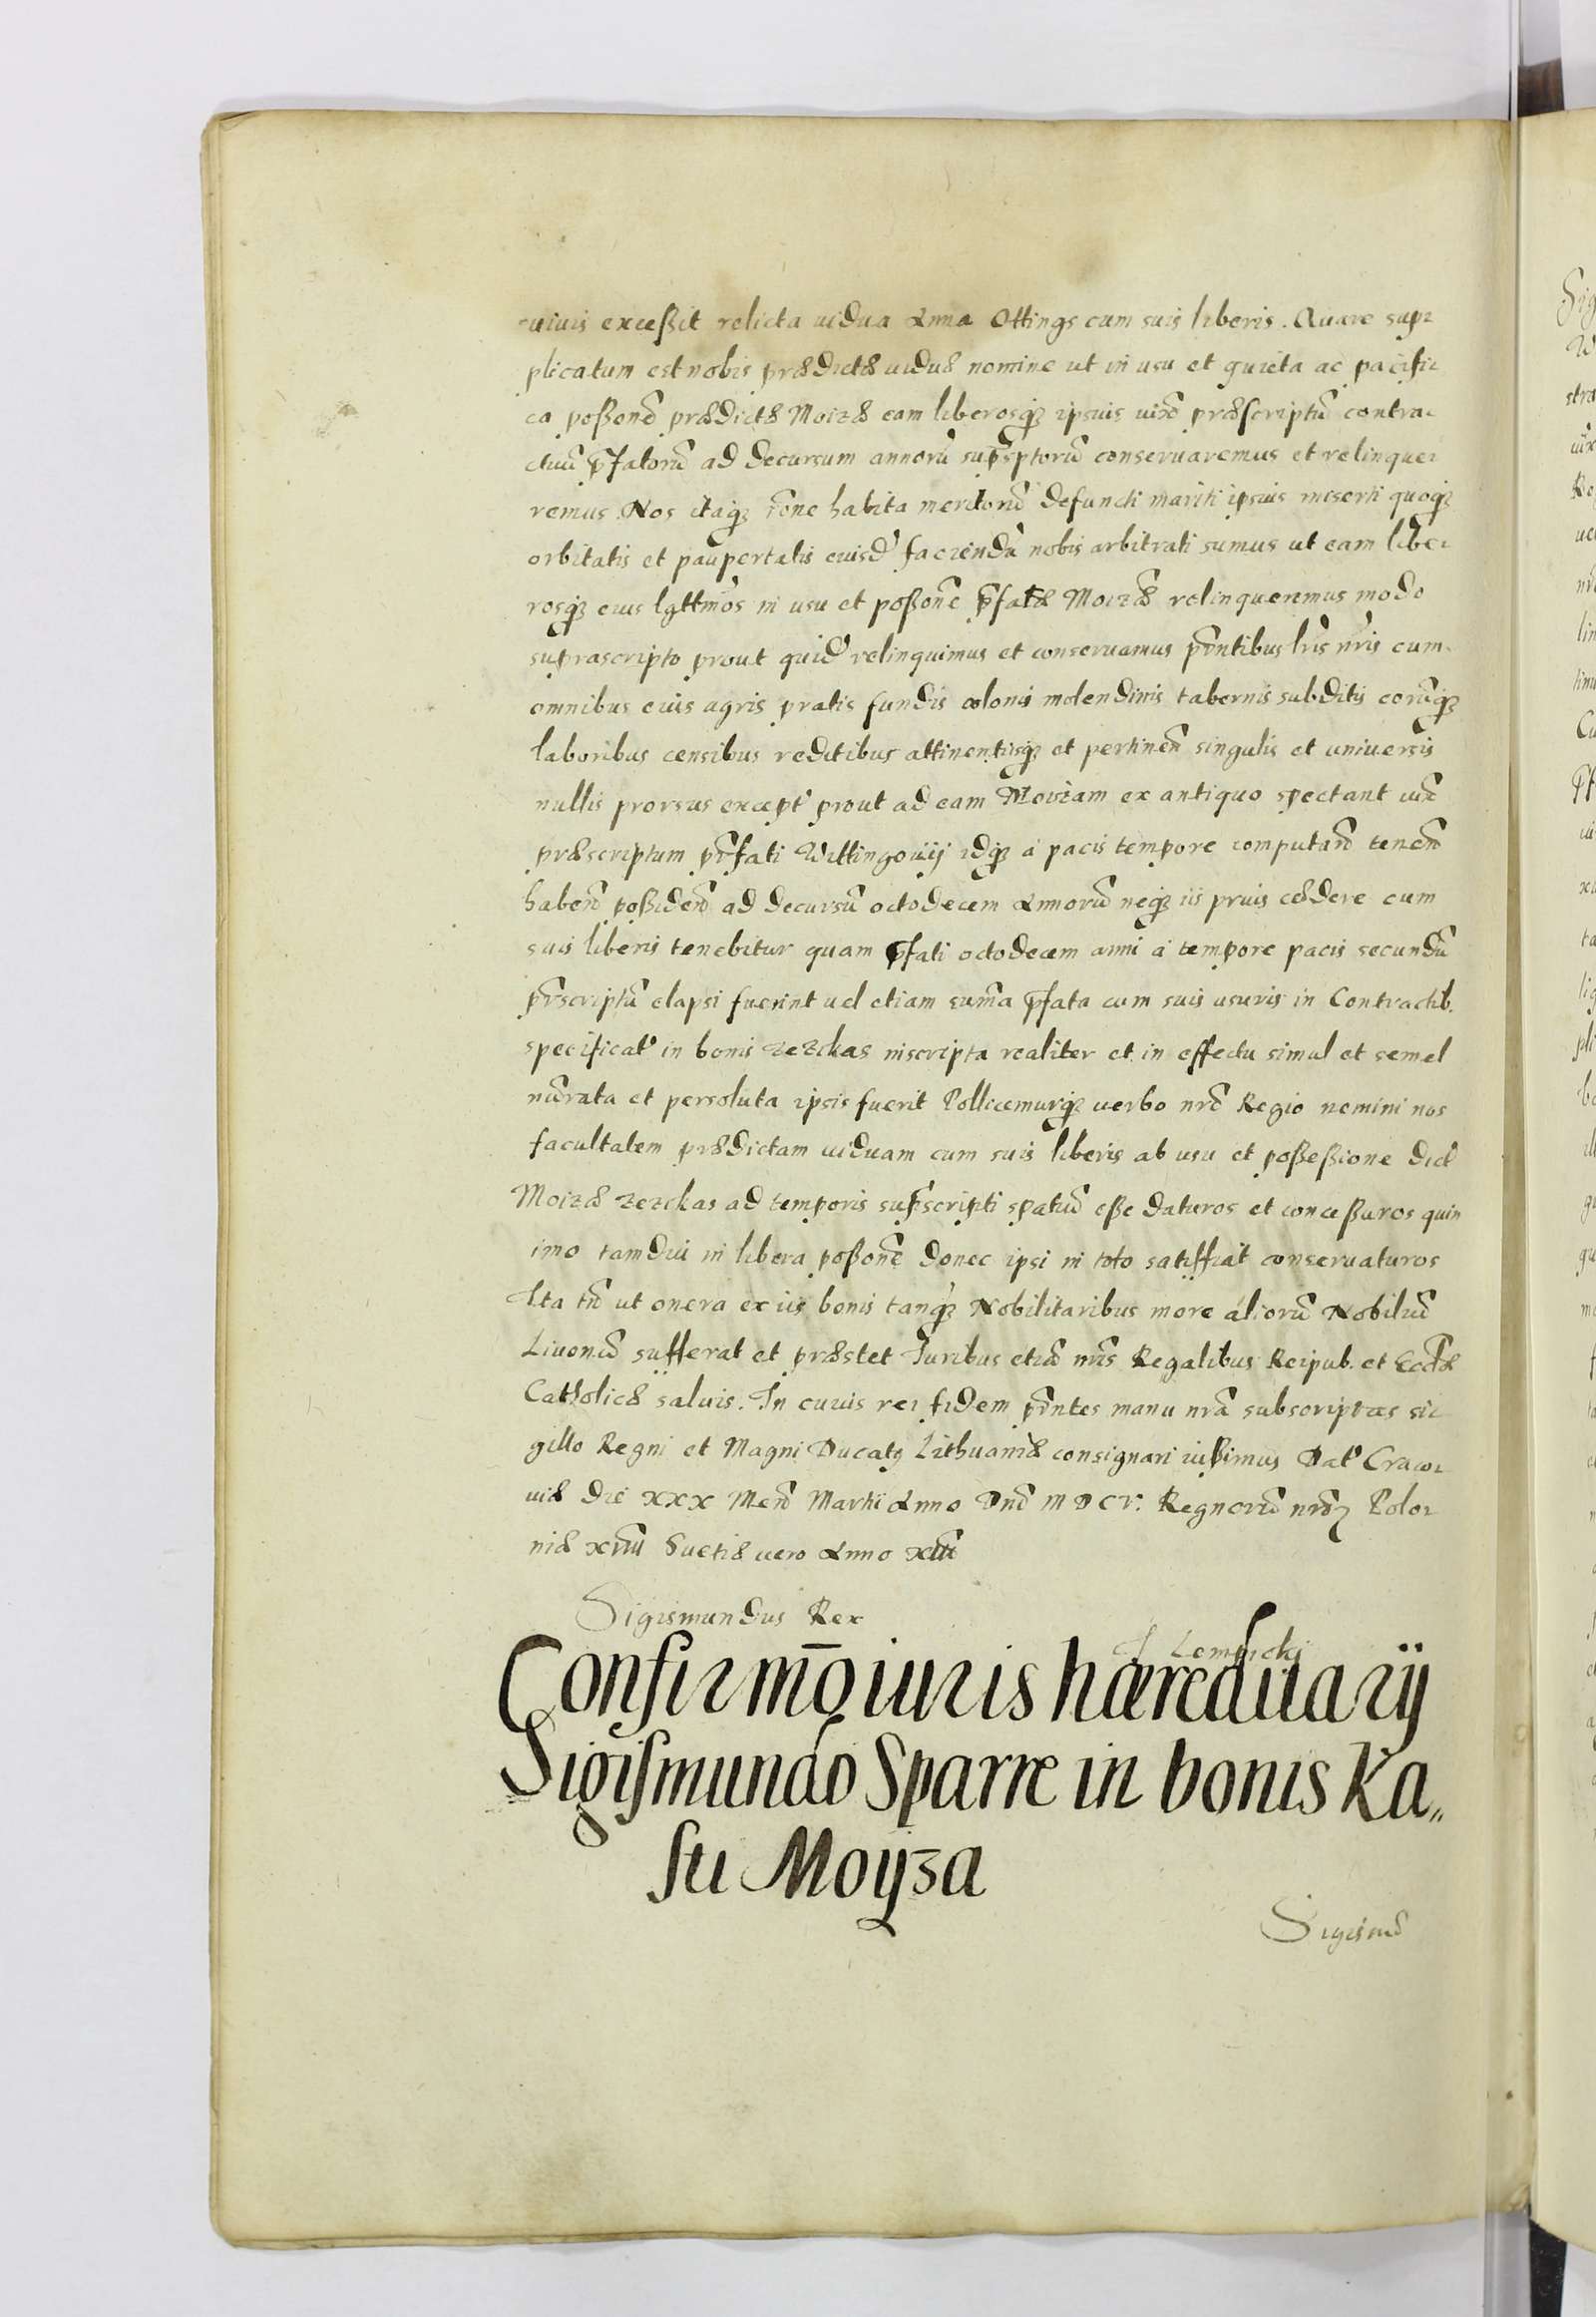 uiuis exceßit relicta uidua Anna Ottings cum suis liberis. Quare sup-
plicatum est nobis prædictæ uiduæ nomine ut in usu et quieta ac pacifi-
ca poßone prædictæ Moizæ eam liberosq; ipsius uixᵃ præscriptũ contra-
ctuũ p̃fatorũ ad decursum annorũ sup̃sptorũ conseruaremus et relinque-
remus. Nos itaq; rõne habita meritorũ defuncti mariti ipsius miserti quoq;
orbitatis et paupertatis eiusd' faciendũ nobis arbitrati sumus ut eam libe-
rosq; eius lgttmõs in usu et poßone p̃fatæ Moizæ relinqueremus modo
suprascripto prout quid' relinquimus et conseruamus pñtibus lrĩs nrĩs cum
omnibus eius agris pratis fundis colonis molendinis tabernis subditis eorũq;
laboribus censibus reditibus attinentijsq; et pertineñ singulis et uniuersis
nullis prorsus except' prout ad eam Moizam ex antiquo spectant iux̃
præscriptum pr̃fati Wittingouij idq; à pacis tempore computañd teneñd
habeñd poßideñd ad decursũ octodecem Annorũ neq; iis prius cædere cum
suis liberis tenebitur quam p̃fati octodecem anni à tempore pacis secundũ
pr̃scriptũ elapsi fuerint uel etiam sum̃a p̃fata cum suis usuris in Contractib.
specificat' in bonis Zezckas inscripta realiter et in effectu simul et semel
nũrata et persoluta ipsis fuerit Pollicemurq; uerbo nrõ Regio nemini nos
facultatem prædictam uiduam cum suis liberis ab usu et poßeßione dict'
Moizæ Zezckas ad temporis sup̃scripti spatiũ eße daturos et conceßuros quin
imo tamdiu in libera poßone donec ipsi in toto satisfiat conseruaturos
Ita tñ ut onera ex iis bonis tanq; Nobilitaribus more aliorũ Nobiliũ
Liuoniũ sufferat et præstet Iuribus etiã nrĩs Regalibus Reipub. et Eccłæ
Catholicæ saluis. In cuius rei fidem pñtes manu nrã subscriptas si-
gillo Regni et Magni Ducatꝰ Lithuaniæ consignari iußimus Dat' Craco-
uiæ die XXX Meñs Martii Anno Dnĩ MDCV. Regnorũ nrõꝝ Polo-
niæ XVIII Suetiæ uero Anno XII
Sigismundus Rex
J Lempicki
Confirmo̅ iuris hæreditarij
Sigismundo Sparre in bonis Ka„
stu Moyza
Sigismũ